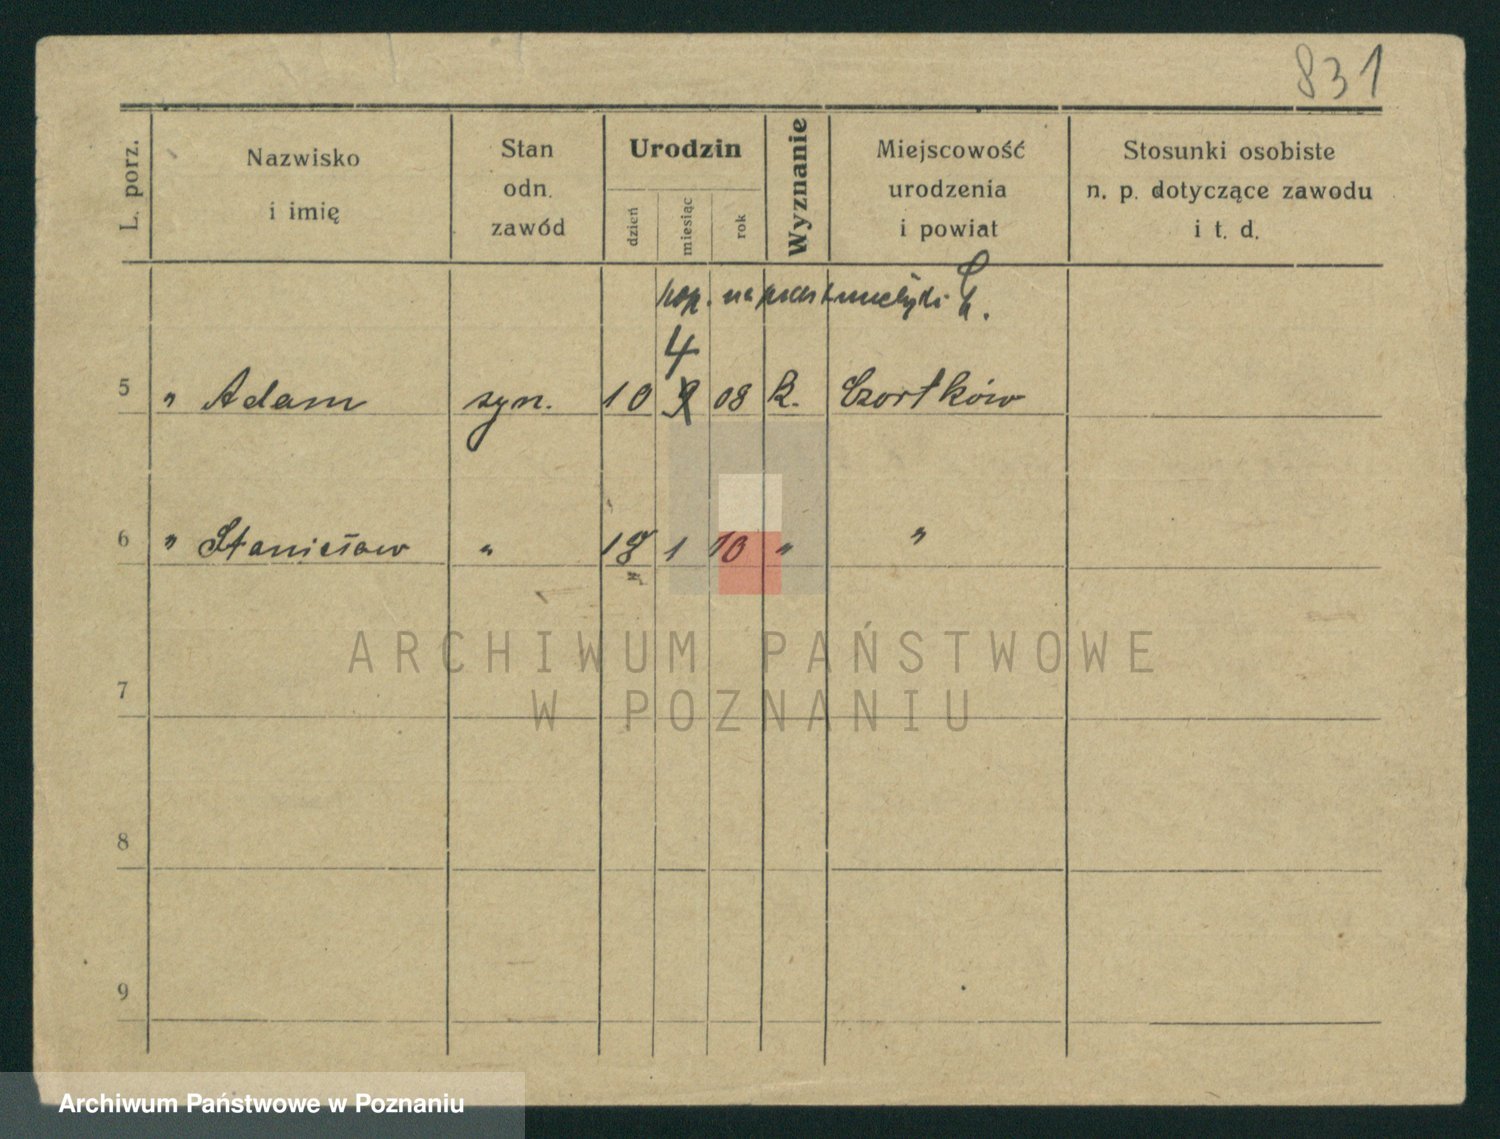 831
L. porz.
Nazwisko
i imię
Stan
odn.
zawód
Urodzin
dzień
miesiąc
rok
Wyznanie
Miejscowość
urodzenia
i powiat
Stosunki osobiste
n. p. dotyczące zawodu
i t. d.
pop. na podst.
4
5 " Adam syn. 10 9 08 k. Czortków
6 " Stanisław " 18 1 10 " "
ARCHIWUM PAŃSTWOWE
W POZNANIU
7
8
9
Archiwum Państwowe w Poznaniu